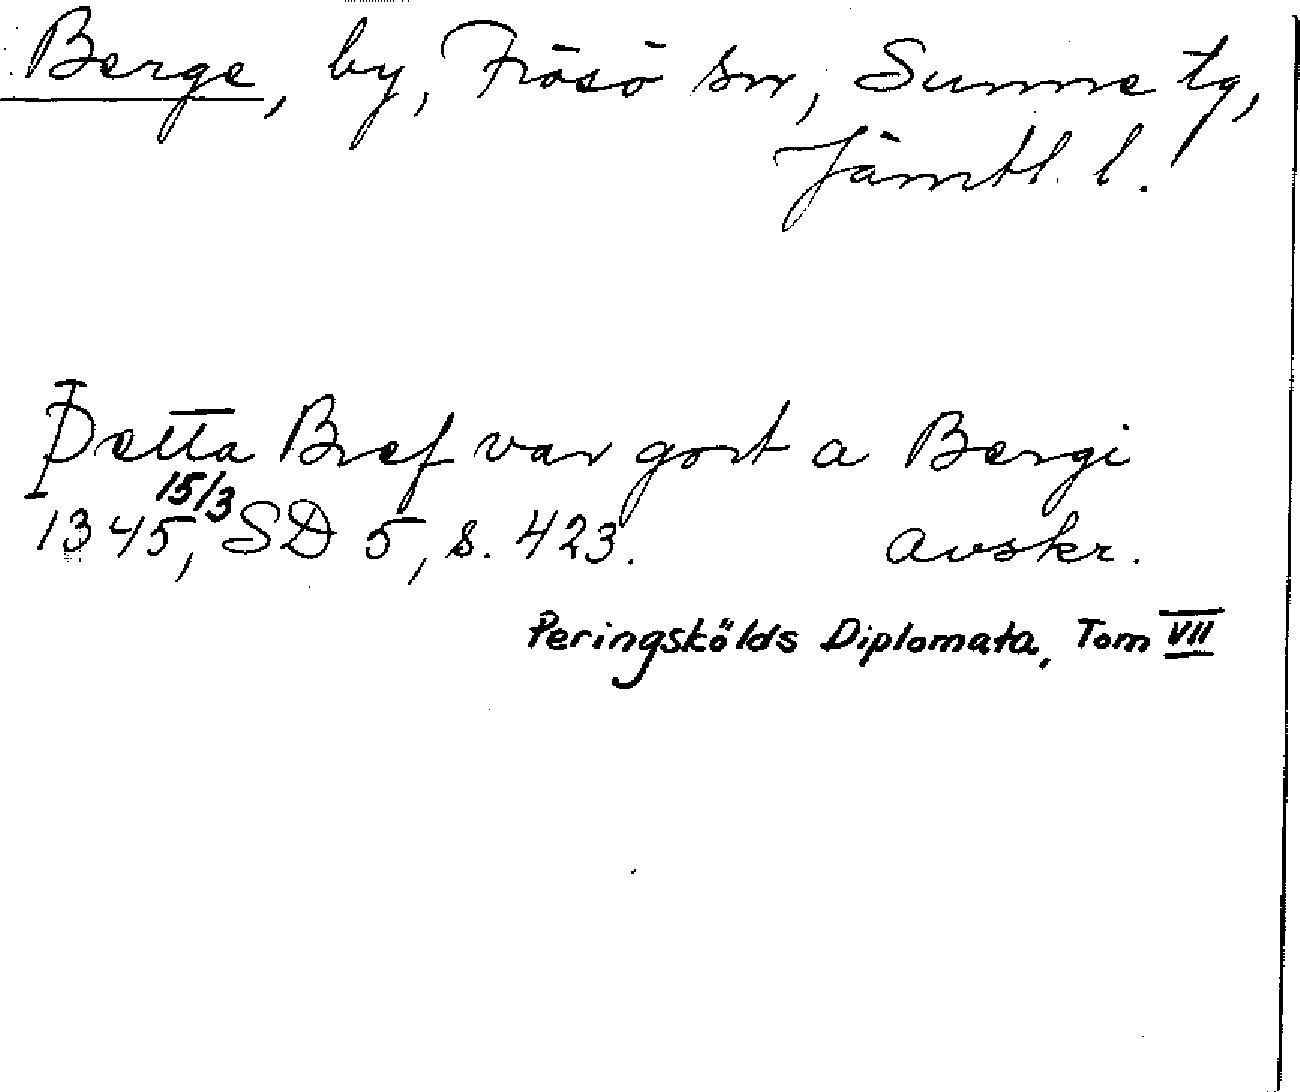 Berge, by, Frösö sn, Sunne tg,
Jämtl. l.
Þetta Bref var gort a Bergi
15/3
1345, SD 5, s. 423. avskr.
Peringskölds Diplomata, Tom VII